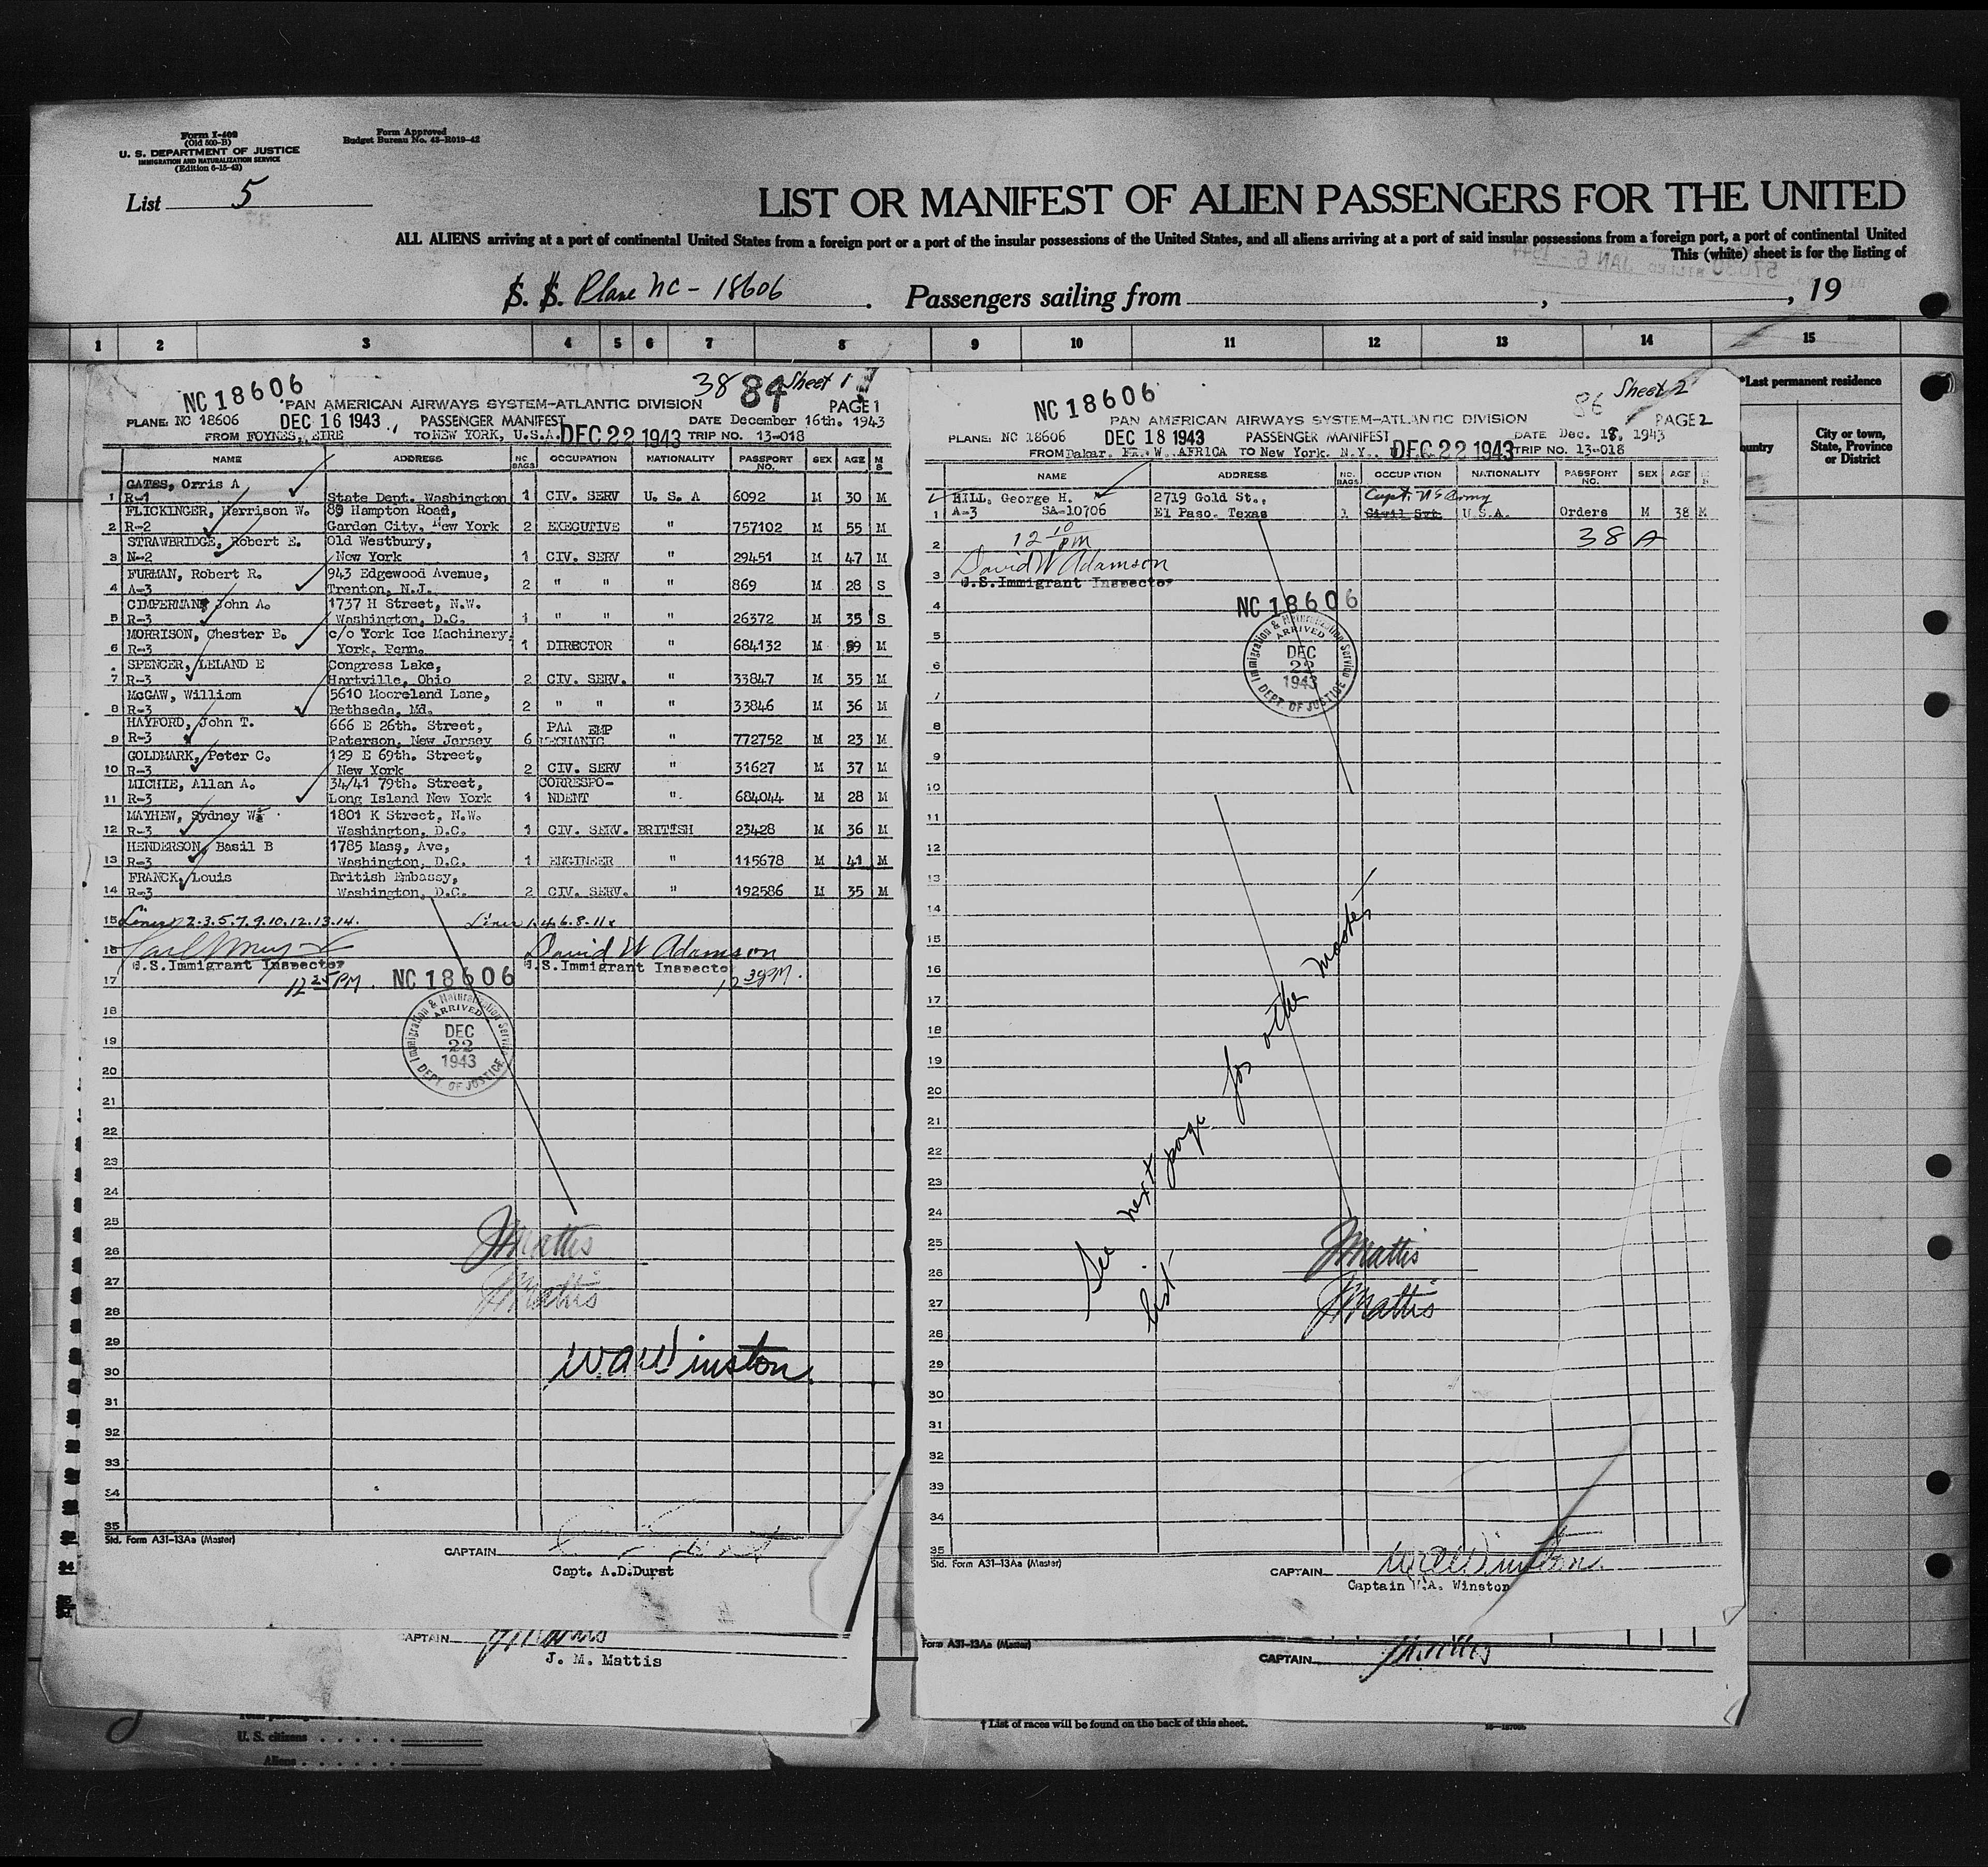 Form I-409
(Old 500-B)
U. S. DEPARTMENT OF JUSTICE
IMMIGRATION AND NATURALIZATION SERVICE
(Edition 6-15-43)
Form Approved
Budget Bureau No. 43-R019-42
List 5
LIST OR MANIFEST OF ALIEN PASSENGERS FOR THE UNITED
ALL ALIENS arriving at a port of continental United States from a foreign port or a port of the insular possessions of the United States, and all aliens arriving at a port of said insular possessions from a foreign port, a port of continental United
This (white) sheet is for the listing of
S. S. Plane NC - 18606 . Passengers sailing from , , 19
1 2 3 4 5 6 7 8 9 10 11 12 13 14 15
NC 18606 38 84 Sheet 1
PAN AMERICAN AIRWAYS SYSTEM-ATLANTIC DIVISION PAGE 1
PLANE: NC 18606 DEC 16 1943 PASSENGER MANIFEST DATE December 16th. 1943
FROM FOYNES, EIRE TO NEW YORK, U.S.A. DEC 22 1943 TRIP NO. 13-018
NAME ADDRESS NO. BAGS OCCUPATION NATIONALITY PASSPORT NO. SEX AGE M S
GATES, Orris A
1 R-1 State Dept. Washington 1 CIV. SERV U. S. A 6092 M 30 M
FLICKINGER, Harrison W. 89 Hampton Road,
2 R-2 Garden City, New York 2 EXECUTIVE " 757102 M 55 M
STRAWBRIDGE, Robert E. Old Westbury,
3 N-2 New York 1 CIV. SERV " 29451 M 47 M
FURMAN, Robert R. 943 Edgewood Avenue,
4 A-3 Trenton, N.J. 2 " " " 869 M 28 S
CIMPERMAN, John A. 1737 H Street, N.W.
5 R-3 Washington, D.C. 1 " " " 26372 M 35 S
MORRISON, Chester E. c/o York Ice Machinery,
6 R-3 York, Penn. 1 DIRECTOR " 684132 M 59 M
SPENCER, LELAND E Congress Lake,
7 R-3 Hartville, Ohio 2 CIV. SERV. " 33847 M 35 M
McGAW, William 5610 Mooreland Lane,
8 R-3 Bethseda, Md. 2 " " " 33846 M 36 M
HAYFORD, John T. 666 E 26th. Street, PAA EMP
9 R-3 Paterson, New Jersey 6 MECHANIC " 772752 M 23 M
GOLDMARK, Peter C. 129 E 69th. Street,
10 R-3 New York 2 CIV. SERV " 31627 M 37 M
MICHIE, Allan A. 34/41 79th. Street, CORRESPO-
11 R-3 Long Island New York 1 NDENT " 684044 M 28 M
MAYHEW, Sydney W. 1801 K Street, N.W.
12 R-3 Washington, D.C. 1 CIV. SERV. BRITISH 23428 M 36 M
HENDERSON, Basil B 1785 Mass, Ave,
13 R-3 Washington, D.C. 1 ENGINEER " 115678 M 41 M
FRANCK, Louis British Embassy,
14 R-3 Washington, D.C. 2 CIV. SERV. " 192586 M 35 M
15 Lines 2.3.5.7.9.10.12.13.14. Lines 1.4.6.8.11
16 David W Adamson
U.S.Immigrant Inspector U.S.Immigrant Inspecto
17 12 25 PM. NC 18606 12 30 PM.
18
19
20
21
22
23
24
25
26
27
28
29
30
31
32
33
34
35
Immigration & Naturalization Service
ARRIVED
DEC
22
1943
DEPT. OF JUSTICE
JMattis
JMattis
W.A. Winston.
Std. Form A31-13Aa (Master)
CAPTAIN
Capt. A.D.Durst
CAPTAIN JMMattis
J. M. Mattis
U. S. citizens
Aliens
NC 18606 86 Sheet 2
PAN AMERICAN AIRWAYS SYSTEM-ATLANTIC DIVISION PAGE 2
PLANE: NC 18606 DEC 18 1943 PASSENGER MANIFEST DATE Dec. 18, 1943
FROM Dakar. FR. W. AFRICA TO New York. N.Y.. DEC 22 1943 TRIP NO. 13-018
NAME ADDRESS NO. BAGS OCCUPATION NATIONALITY PASSPORT NO. SEX AGE
HILL, George H. 2719 Gold St., Capt. US Army
1 A-3 SA-10706 El Paso. Texas 1 Civil Svt. U.S.A. Orders M 38 M
2 12 10 PM 38 A
David W Adamson
3 U.S.Immigrant Inspector
NC 18606
4
5
6
7
8
9
10
11
12
13
14
15
16
17
18
19
20
21
22
23
24
25
26
27
28
29
30
31
32
33
34
35
Immigration & Naturalization Service
ARRIVED
DEC
22
1943
DEPT. OF JUSTICE
See next page for other master
list
JMattis
JMattis
Std. Form A31-13Aa (Master)
CAPTAIN W.A. Winston.
Captain W.A. Winston
Form A31-13Aa (Master)
CAPTAIN JMMattis
† List of races will be found on the back of this sheet.
*Last permanent residence
City or town,
State, Province
or District